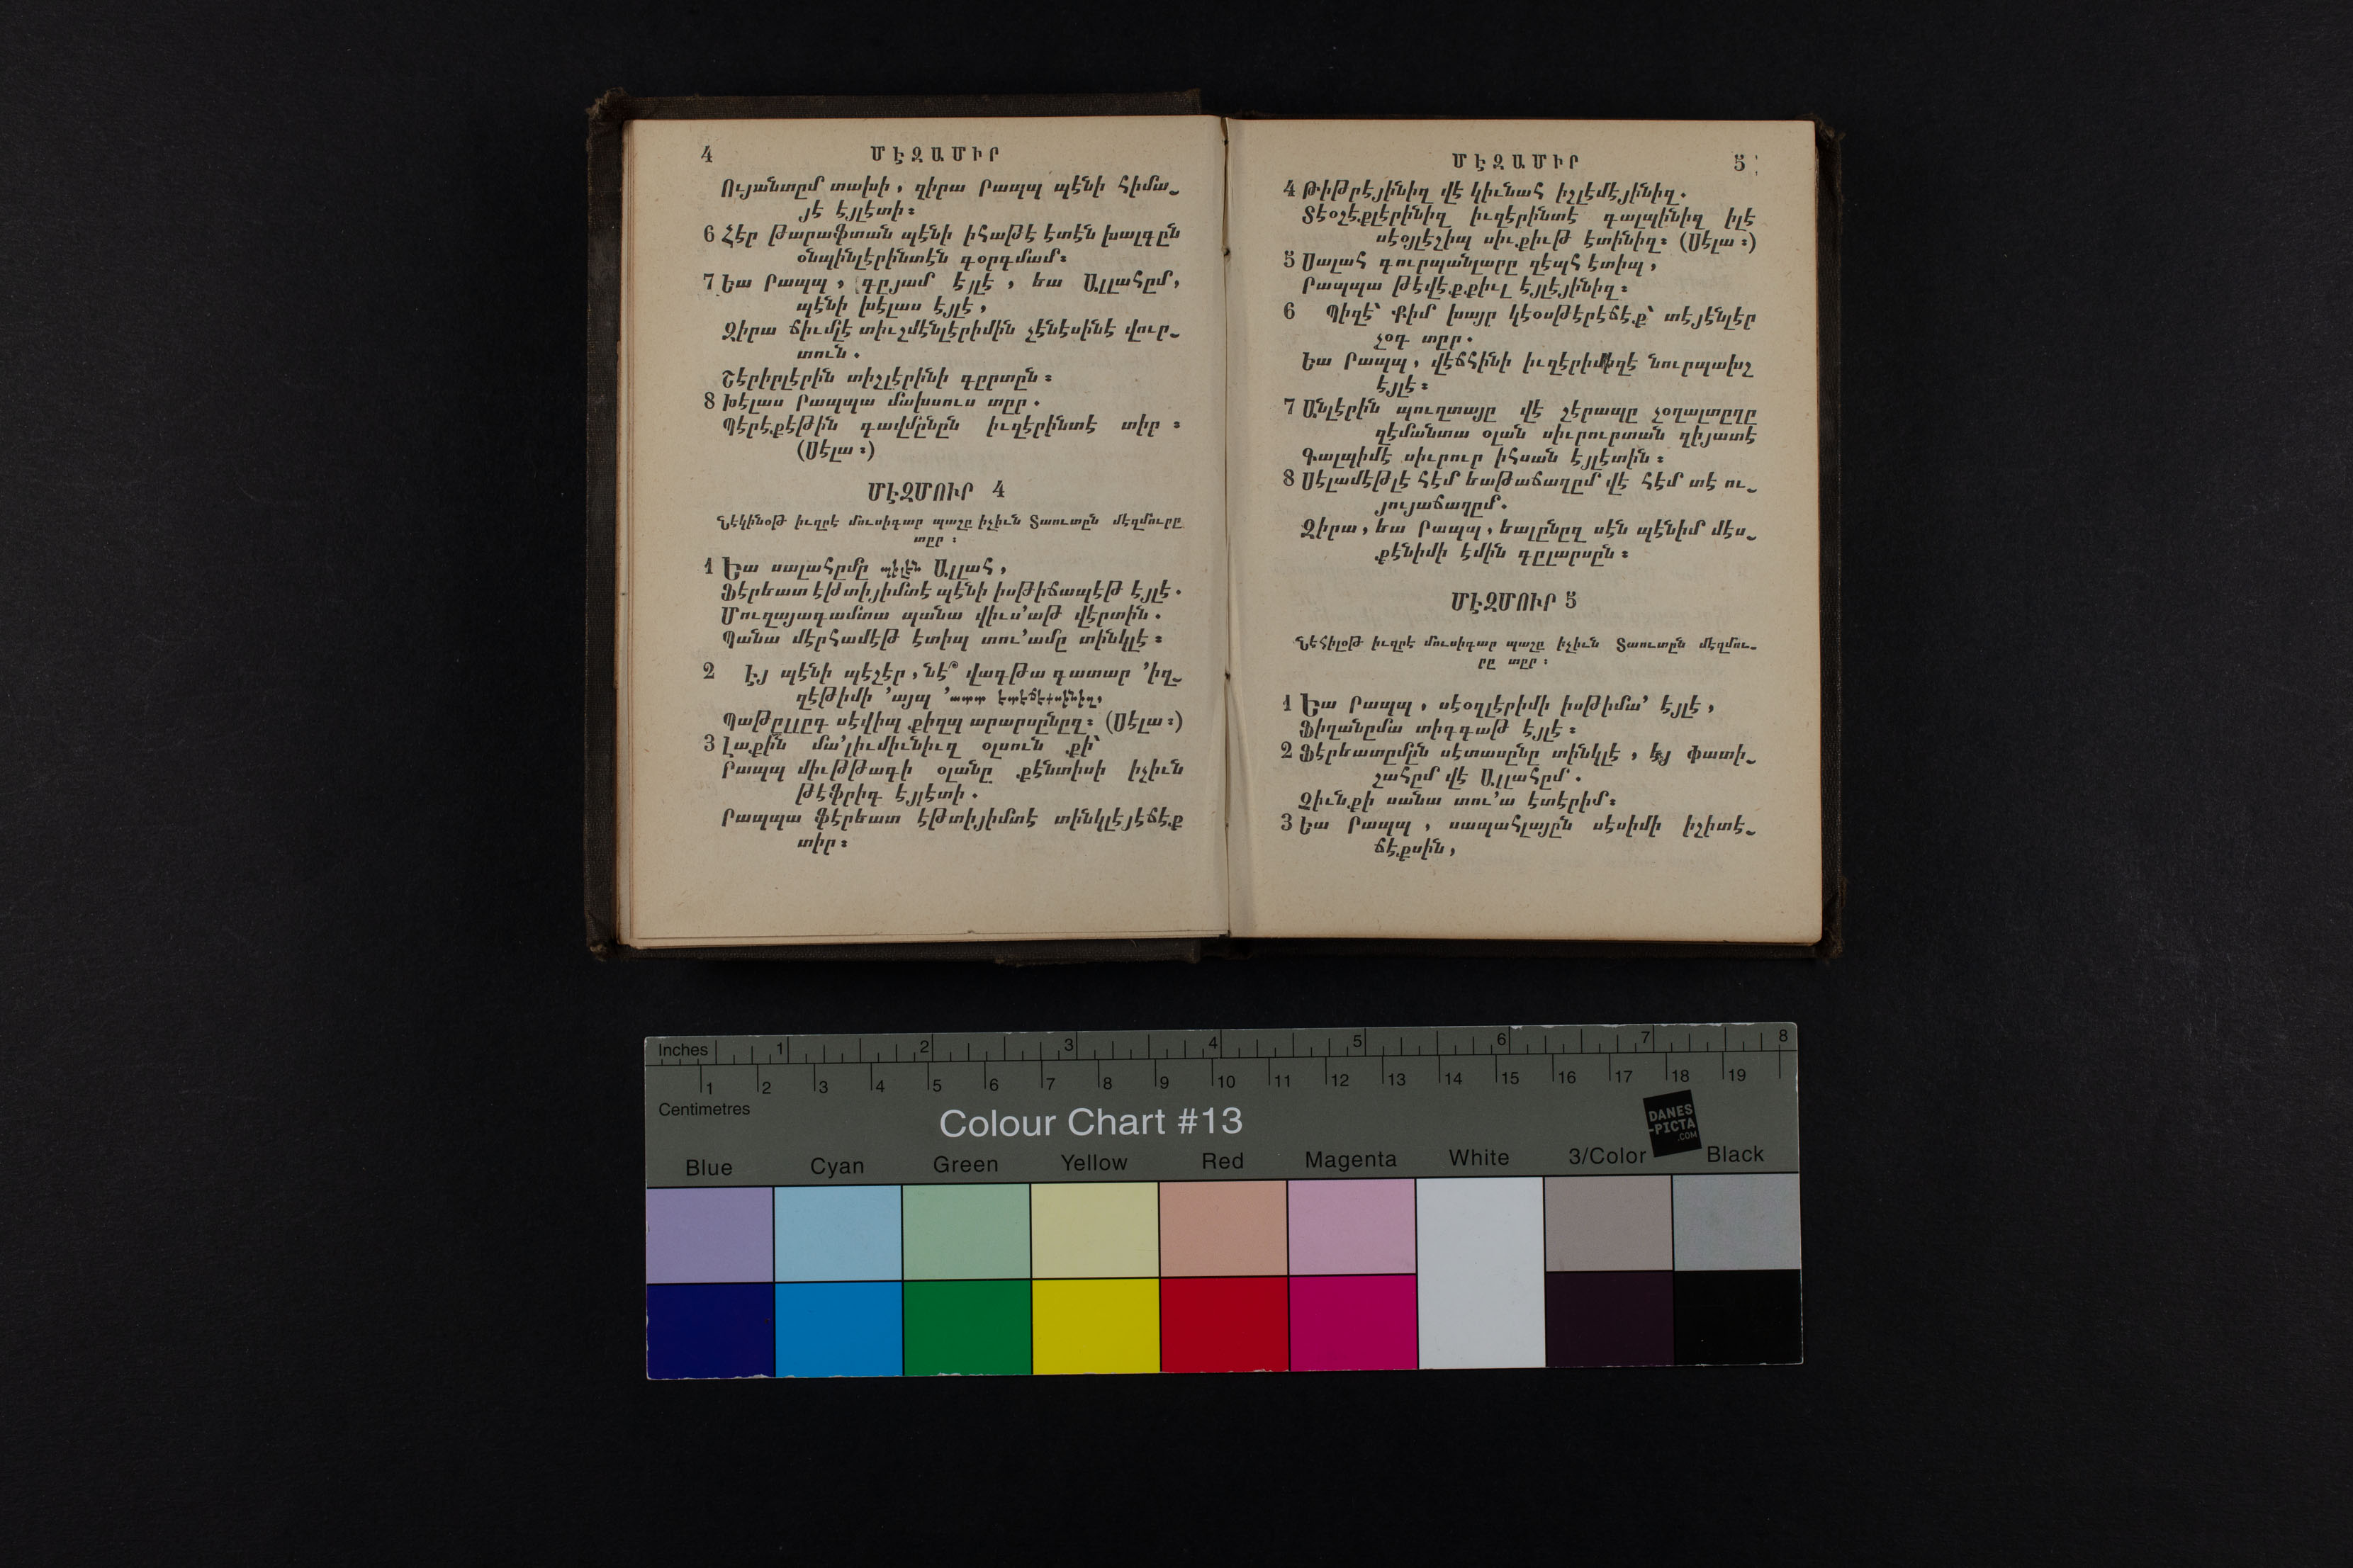 4
ՄԷԶԱՄԻՐ
Ույանտըմ տախի, զիրա Րապպ պէնի հիմա-
յէ էյլէտի։
6 Հէր թարաֆտան պէնի իհաթէ էտէն խալգըն
օնպինլէրինտէն գօրգմամ։
7 Եա Րապպ, գըյամ էյլէ, եա Ալլահըմ,
պէնի խէլաս էյլէ,
Զիրա ճիւմլէ տիւշմէնլէրիմին չէնէսինէ վուր-
տուն.
Շէրիրլէրին տիշլէրինի գըրտըն։
8 Խէլաս Րապպա մախսուս տըր.
Պէրէքէթին գավմընըն իւզէրինտէ տիր։
(Սէլա։)
ՄԷԶՄՈՒՐ 4
Նէկինօթ իւզրէ մուսիգար պաշը իչիւն Տաուտըն մէզմուրը
տըր։
1 Եա սալահըմը պիլէն Ալլահ,
Ֆէրեատ էթտիյիմտէ պէնի իսթիճապէթ էյլէ.
Մուզայագամտա պանա վիւս՚աթ վէրտին.
Պանա մէրհամէթ էտիպ տու՚ամը տինկլէ։
2 Էյ պէնի պէշէր, նէ՞ վագթա գատար ՚իզ-
զէթիմի ՚այպ ՚ատտ
Պաթըլլըգ սէվիպ քիզպ արարսընըզ։ (Սէլա։)
3 Լաքին մա՚լիւմիւնիւզ օլսուն քի՝
Րապպ միւթթագի օլանը քէնտիսի իչիւն
թէֆրիգ էյլէտի.
Րապպա ֆէրեատ էթտիյիմտէ տինկլէյէճէք
տիր։
ՄԷԶԱՄԻՐ
5
4 Թիթրէյինիզ վէ կիւնահ իշլէմէյինիզ.
Տէօշէքլէրինիզ իւզէրինտէ գալպինիզ իլէ
սէօյլէշիպ սիւքիւթ էտինիզ։ (Սէլա։)
5 Սալահ գուրպանլարը զէպհ էտիպ,
Րապպա թէվէքքիւլ էյլէյինիզ։
6 Պիզէ՝ Քիմ խայր կէօսթէրէճէք՝ տէյէնլէր
չօգ տըր.
Եա Րապպ, վէճհինի իւզէրիմիզէ նուրպախշ
էյլէ։
7 Անլէրին պուղտայը վէ շէրապը չօղալտըղը
զէմանտա օլան սիւրուրտան զիյատէ
Գալպիմէ սիւրուր իհսան էյլէտին։
8 Սէլամէթլէ հէմ եաթաճաղըմ վէ հէմ տէ ու-
յույաճաղըմ.
Զիրա, եա Րապպ, եալընըզ սէն պէնիմ մէս-
քէնիմի էմին գըլարսըն։
ՄԷԶՄՈՒՐ 5
Նէհիլօթ իւզրէ մուսիգար պաշը իչիւն Տաուտըն մէզմու-
րը տըր։
1 Եա Րապպ, սէօզլէրիմի իսթիմա՚ էյլէ,
Ֆիղանըմա տիգգաթ էյլէ։
2 Ֆէրեատըմըն սէտասընը տինկլէ, էյ փատի-
շահըմ վէ Ալլահըմ.
Չիւնքի սանա տու՚ա էտէրիմ։
3 Եա Րապպ, սապահլայըն սէսիմի իշիտէ-
ճէքսին,
Inches 1 2 3 4 5 6 7 8
1 2 3 4 5 6 7 8 9 10 11 12 13 14 15 16 17 18 19
Centimetres
Colour Chart #13
DANES
-PICTA
.COM
Blue Cyan Green Yellow Red Magenta White 3/Color Black